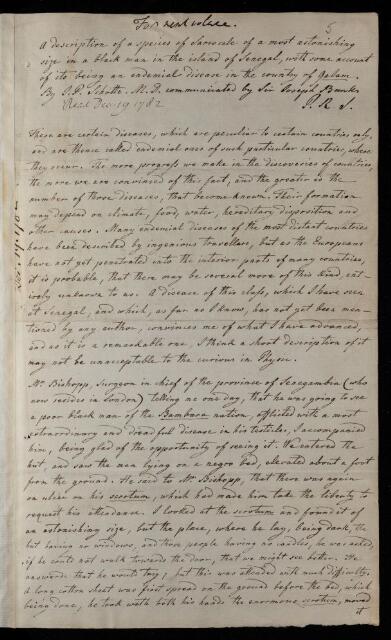 For next volume.
5
A description of a species of Sarcocele of a most astonishing
size in a black man in the island of Senegal, with some account
of its being an endemial disease in the country of Galam.
By J. P. Schotte. M.D. communicated by Sir Joseph Banks
Read Dec. 19 1782
P. R. S.
There are certain diseases, which are peculiar to certain countries only,
and are thence called endemial ones of such particular countries, where
they occur. The more progress we make in the discoveries of countries,
the more we are convinced of this fact, and the greater is the
number of those diseases, that become known. Their formation
may depend on climate, food, water, hereditary disposition and
other causes. Many endemial diseases of the most distant countries
have been described by ingenious travellers, but as the Europeans
have not yet penetrated into the interior parts of many countries,
it is probable, that there may be several more of this kind ent-
irely unknown to us. A disease of this class, which I have seen
at Senegal, and which, as far as I know, has not yet been men-
tioned by any author, convinces me of what I have advanced,
and as it is a remarkable one, I think a short description of it
may not be unacceptable to the curious in Physic.
Mr. Bishopp, Surgeon in chief of the province of Senegambia (who
now resides in London) telling me one day, that he was going to see
a poor black man of the Bambara nation, afflicted with a most
extraordinary and dreadful disease in his testicles, I accompanied
him, being glad of the opportunity of seeing it. We entered the
hut, and saw the man lying on a negro bed, elevated about a foot
from the ground. He said to Mr. Bishopp, that there was again
an ulcer on his scrotum, which had made him take the liberty to
request his attendance. I looked at the scrotum and found it of
an astonishing size, but the place, where he lay, being dark, the
hut having no windows, and those people having no candles, he was asked,
if he could not walk towards the door, that we might see better. He
answered that he would try; but this was attended with much difficulty.
A long cotton sheet was first spread on the ground before the bed, which
being done, he took with both his hands the enormous scrotum, moved
it